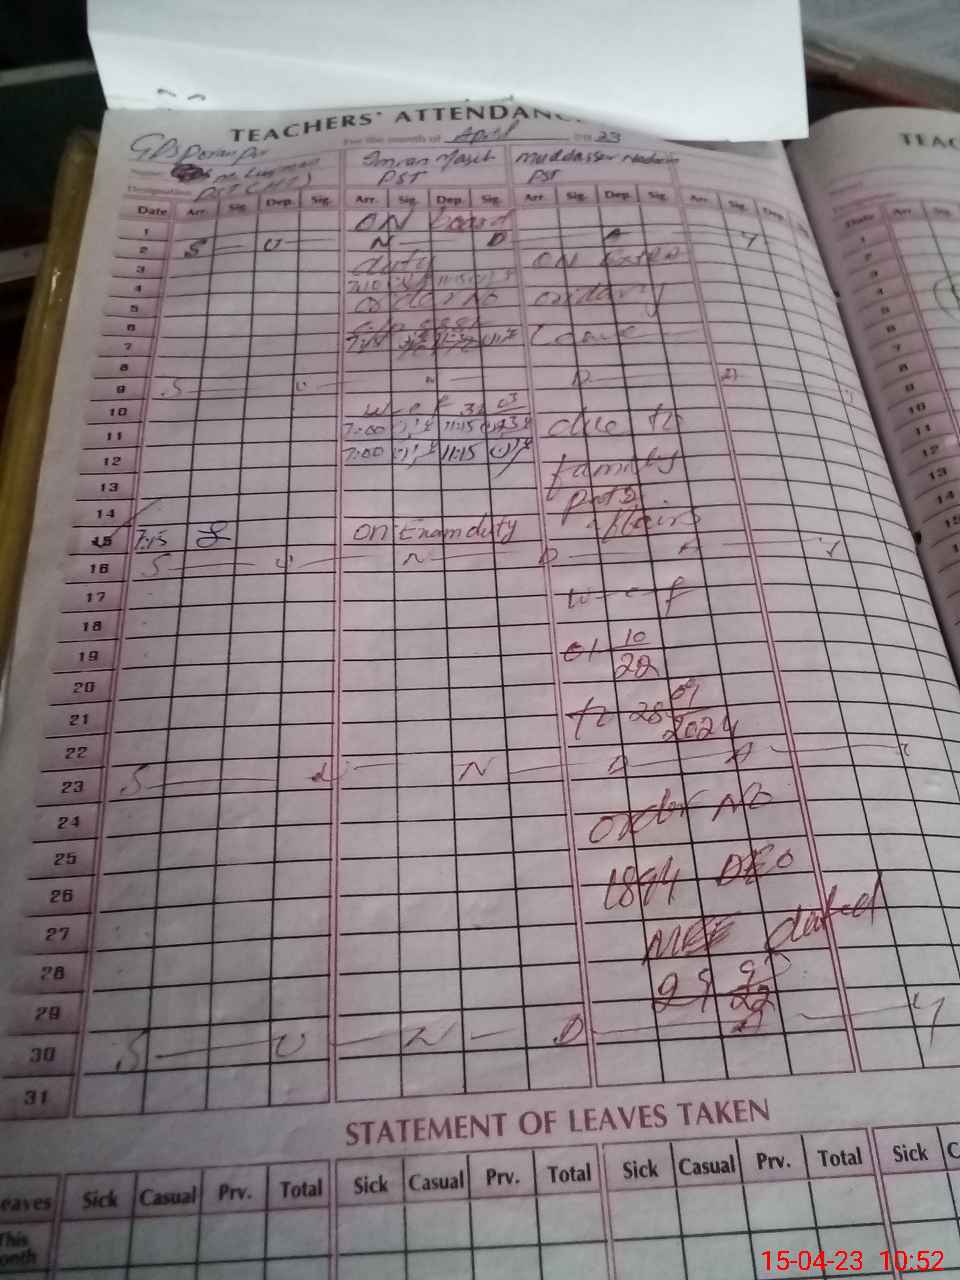 TEACHERS' ATTENDANC
For the month of April 2023
TEAC
Imran Masih
Muddasser Nadeem
PST
PST
Designation
Date Arr. Sig. Dep. Sig. Arr. Sig. Dep. Sig. Arr. Sig. Dep. Sig. Arr. Sig. Dep.
Date Arr.
1 ON board
2 S U N D A Y
3 duty ON Extra
4 7:10 11:15
5 order no ordinary
6
7 Leave
8
9 S U N D A Y
10 w e f 31 03
11 7:00 11:15 due to
12 7:00 11:15 family
13
14
15 7:15 ON Exam duty affairs
16 S U N D A Y
17 w-e-f
18
19 01 10/22
20
21 to 28 09/2024
22
23 S U N D A Y
24 order NO
25
26 1844 DEO
27 MEE dated
28
29 29 9/22
30 S U N D A Y
31
STATEMENT OF LEAVES TAKEN
eaves Sick Casual Prv. Total Sick Casual Prv. Total Sick Casual Prv. Total Sick C
This
onth
15-04-23 10:52